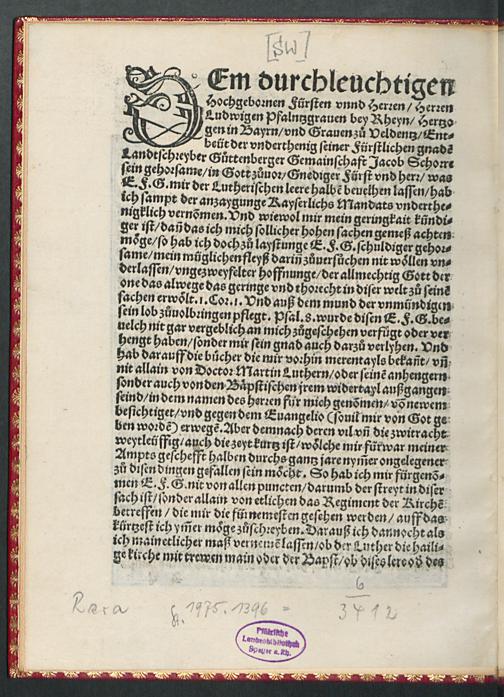 [SW]
DEm durchleuchtigen
Hochgebornen Fürsten vnnd Herren/ Herren
Ludwigen Pfalntzgrauen bey Rheyn/ Hertzo-
gen in Bayrn/vnd Grauen zů Veldentz/Ent-
beüt der vnderthenig seiner Fürstlichen gnadē
Landtschreyber Güttenberger Gemainschaft Jacob Schorre
sein gehorsame/in Gott zůuor/Gnediger Fürst vnd herr/ was
E.F.G. mit der Lutherischen leere halbē beuelhen lassen/hab
ich sampt der anzaygunge Kayserlichs Mandats vnderthe-
nigklich vernōmen. Vnd wiewol mir mein geringkait kündi-
ger ist/dañ das ich mich sollicher hohen sachen gemeß achten
möge/so hab ich doch zů laystunge E.F.G. schuldiger gehor-
same/mein müglichen fleyß darin zůuersüchen nit wöllen vn-
derlassen/vngezweyfelter hoffnunge/der allmechtig Gott der
one das alwege das geringe vnd thorecht in diser welt zů seinē
sachen erwölt. 1. Cor. 1. Vnd auß dem mund der vnmündigen
sein lob zůuolbringen pflegt. Psal. 8. wurde disen E.F.G. be-
uelch nit gar vergeblich an mich zůgeschehen verfügt oder ver
hengt haben/sonder mir sein gnad auch darzů verlyhen. Vnd
hab darauff die bücher die mir vorhin merentayls bekañt/ vñ
nit allain von Doctor Martin Luthern/oder seinē anhengern
sonder auch von den Bäpstischen jrem widertayl außgangen
seind/in dem namen des herren für mich genōmen/ vō newem
besichtiget/vnd gegen dem Euangelio (souil mir von Got ge-
ben wordē) erwegē. Aber demnach deren vil vñ die zwitracht
weytleüffig/auch die zeyt kurtz ist/wölche mir fürwar meiner
Ampts gescheefft halben durchs gantz jare nymer ongelegener
zů disen dingen gefallen sein möcht. So hab ich mir fürgenō-
men E.F.G. nit von allen puncten/darumb der streyt in diser
sach ist/sonder allain von etlichen das Regiment der Kirchē
betreffen/ die mir die fürnemesten gesehen werden/ auff das
kürtzest ich ymer möge zůschreyben. Darauß ich dannocht als
ich mainetlicher maß vernemē lassen/ob der Luther die haili-
ge kirche mit trewen main oder der Bapst/ob dise lere od̄ des
Rara
g. 1975.1396 =
6
3412
Pfälzische
Landesbibliothek
Speyer a. Rh.